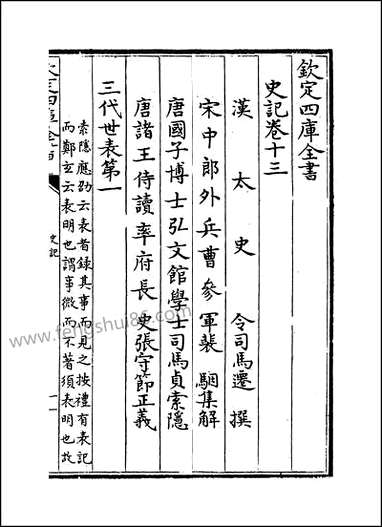 欽定四庫全書
史記卷十三
漢太史令司馬遷撰
宋中郎外兵曹參軍裴駰集解
唐國子博士弘文館學士司馬貞索隱
唐諸王侍讀率府長史張守節正義
三代世表第一
索隱應劭云表者錄其事而見之按禮有表記
而鄭玄云表明也謂事微而不著須表明也故
史記
www.fengshui86.com